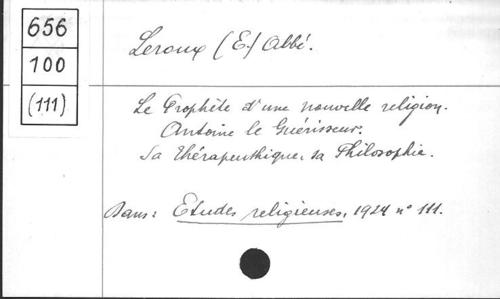 656
100
(111)
Leroux (E.) Abbé.
Le Prophète d'une nouvelle religion.
Antoine le Guérisseur.
Sa thérapeuthique, sa Philosophie.
Dans: Etudes religieuses, 1924 n° 111.